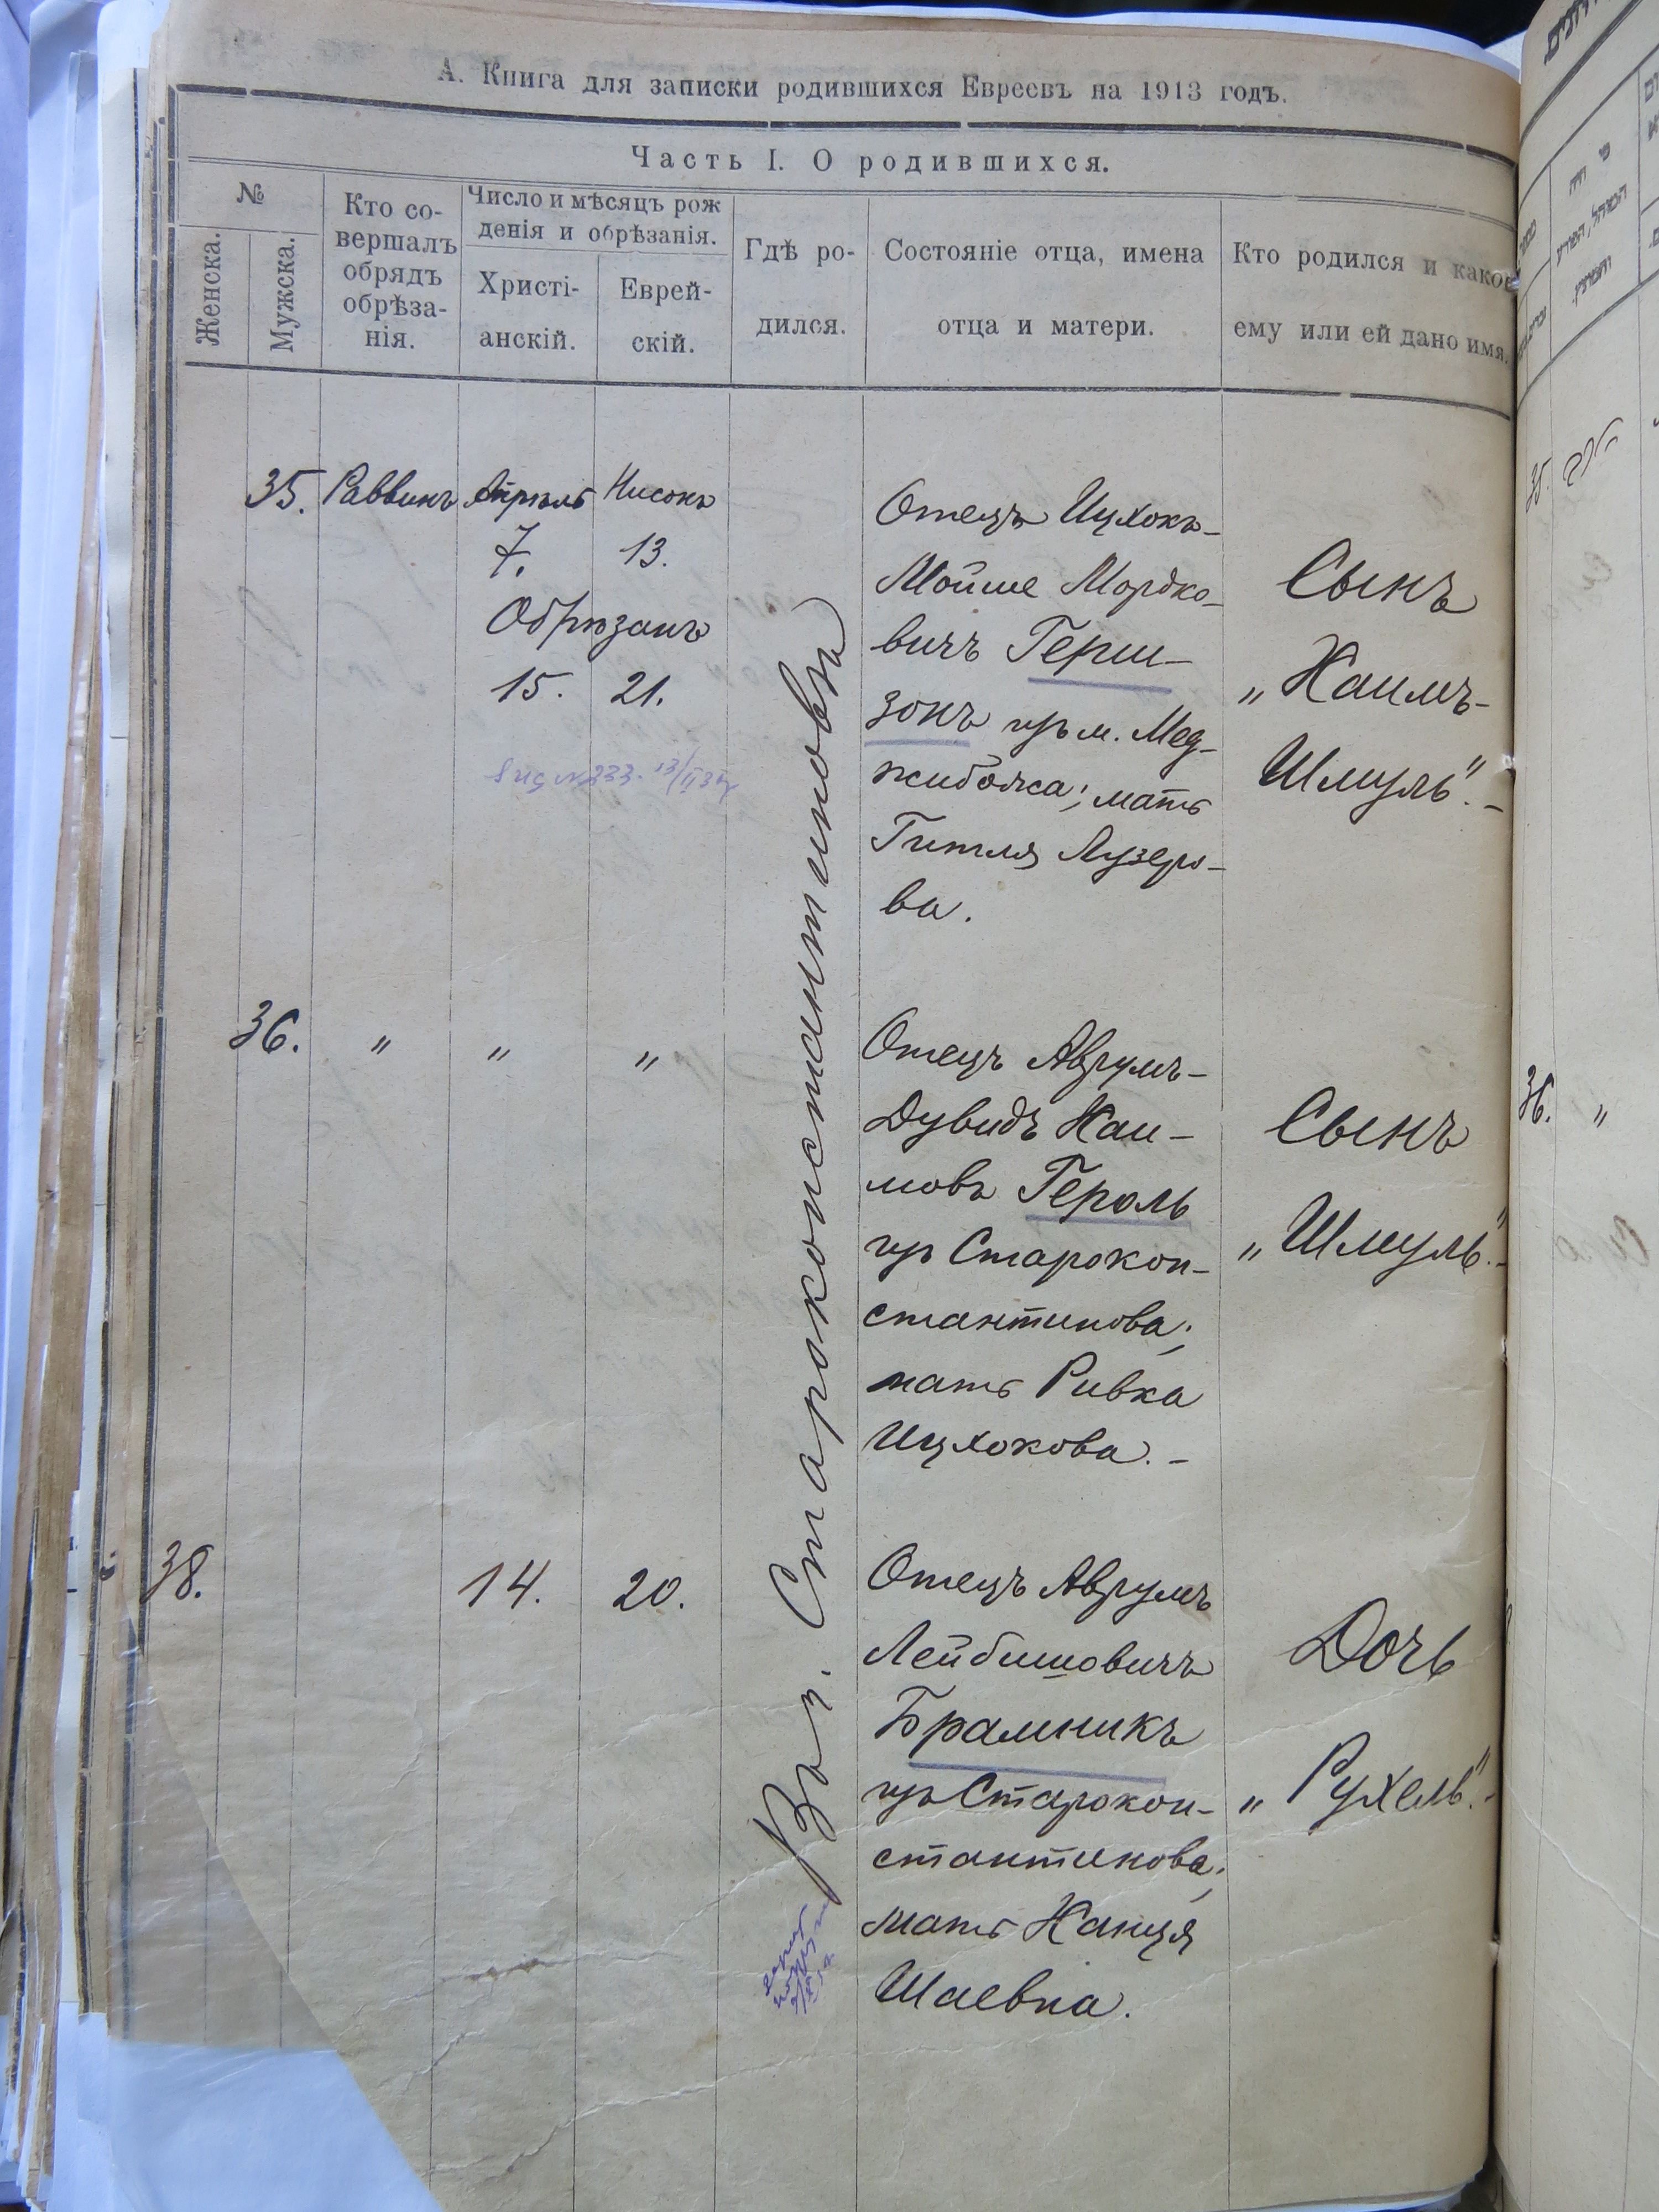 А. Книга для записки родившихся Евреевъ на 1913 годъ.
Часть I. О родившихся.
№
Женска.
Мужска.
Кто со-
вершалъ
обрядъ
обрѣза-
нія.
Число и мѣсяцъ рож
денія и обрѣзанія.
Христі-
анскій.
Еврей-
скій.
Гдѣ ро-
дился.
Состояніе отца, имена
отца и матери.
Кто родился и какое
ему или ей дано имя.
35. Раввинъ Апрѣль Нисонъ
7. 13.
Обрѣзанъ
15. 21.
Отецъ Ицхокъ-
Мойше Мордко-
вичъ Герш-
зонъ изъ м. Мед-
жибожа; мать
Гитля Лузеро-
ва.
Сынъ
„Хаимъ-
Шмуль“.-
Въ г. Староконстантиновѣ
36. „ „ „
Отецъ Аврумъ-
Дувидъ Хаи-
мовъ Героль
изъ Старокон-
стантинова;
мать Ривка
Ицхокова.-
Сынъ
„Шмуль“.-
38. 14. 20.
Отецъ Аврумъ
Лейбишовичъ
Брамникъ
изъ Старокон-
стантинова;
мать Ханця
Шаевна.
Дочь
„Рухель“.-
35.
36. „